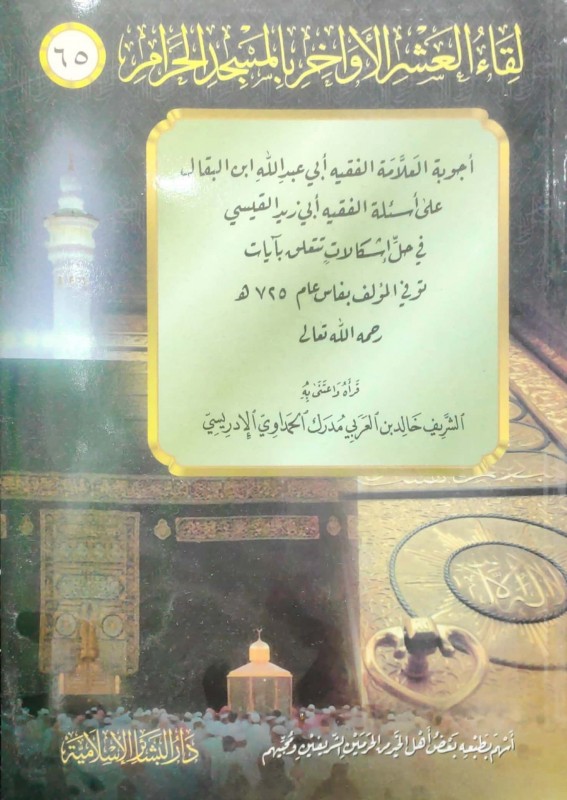 لِقَاءُ العَشْرِ الأَوَاخِرِ بِالمَسْجِدِ الحَرَامِ
٦٥
أجوبة العَلَّامَة الفقيه أبي عبد الله ابن البقال
على أسئلة الفقيه أبي زيد القيسي
في حلِّ إشكالاتٍ تتعلق بآيات
توفي المؤلف بفاس عام ٧٢٥ هـ
رحمه الله تعالى
قَرَأَهُ وَاعْتَنَى بِهِ
الشَّرِيف خَالِد بن العَرَبي مُدرك الحَمداوِيّ الإِدرِيسِيّ
أَسْهَمَ بِطَبْعِهِ بَعْضُ أَهْلِ الخَيْرِ مِنَ الحَرَمَيْنِ الشَّرِيفَيْنِ وَمُحِبِّيهِم
دَارُ البَشَائِرِ الإِسْلَامِيَّة